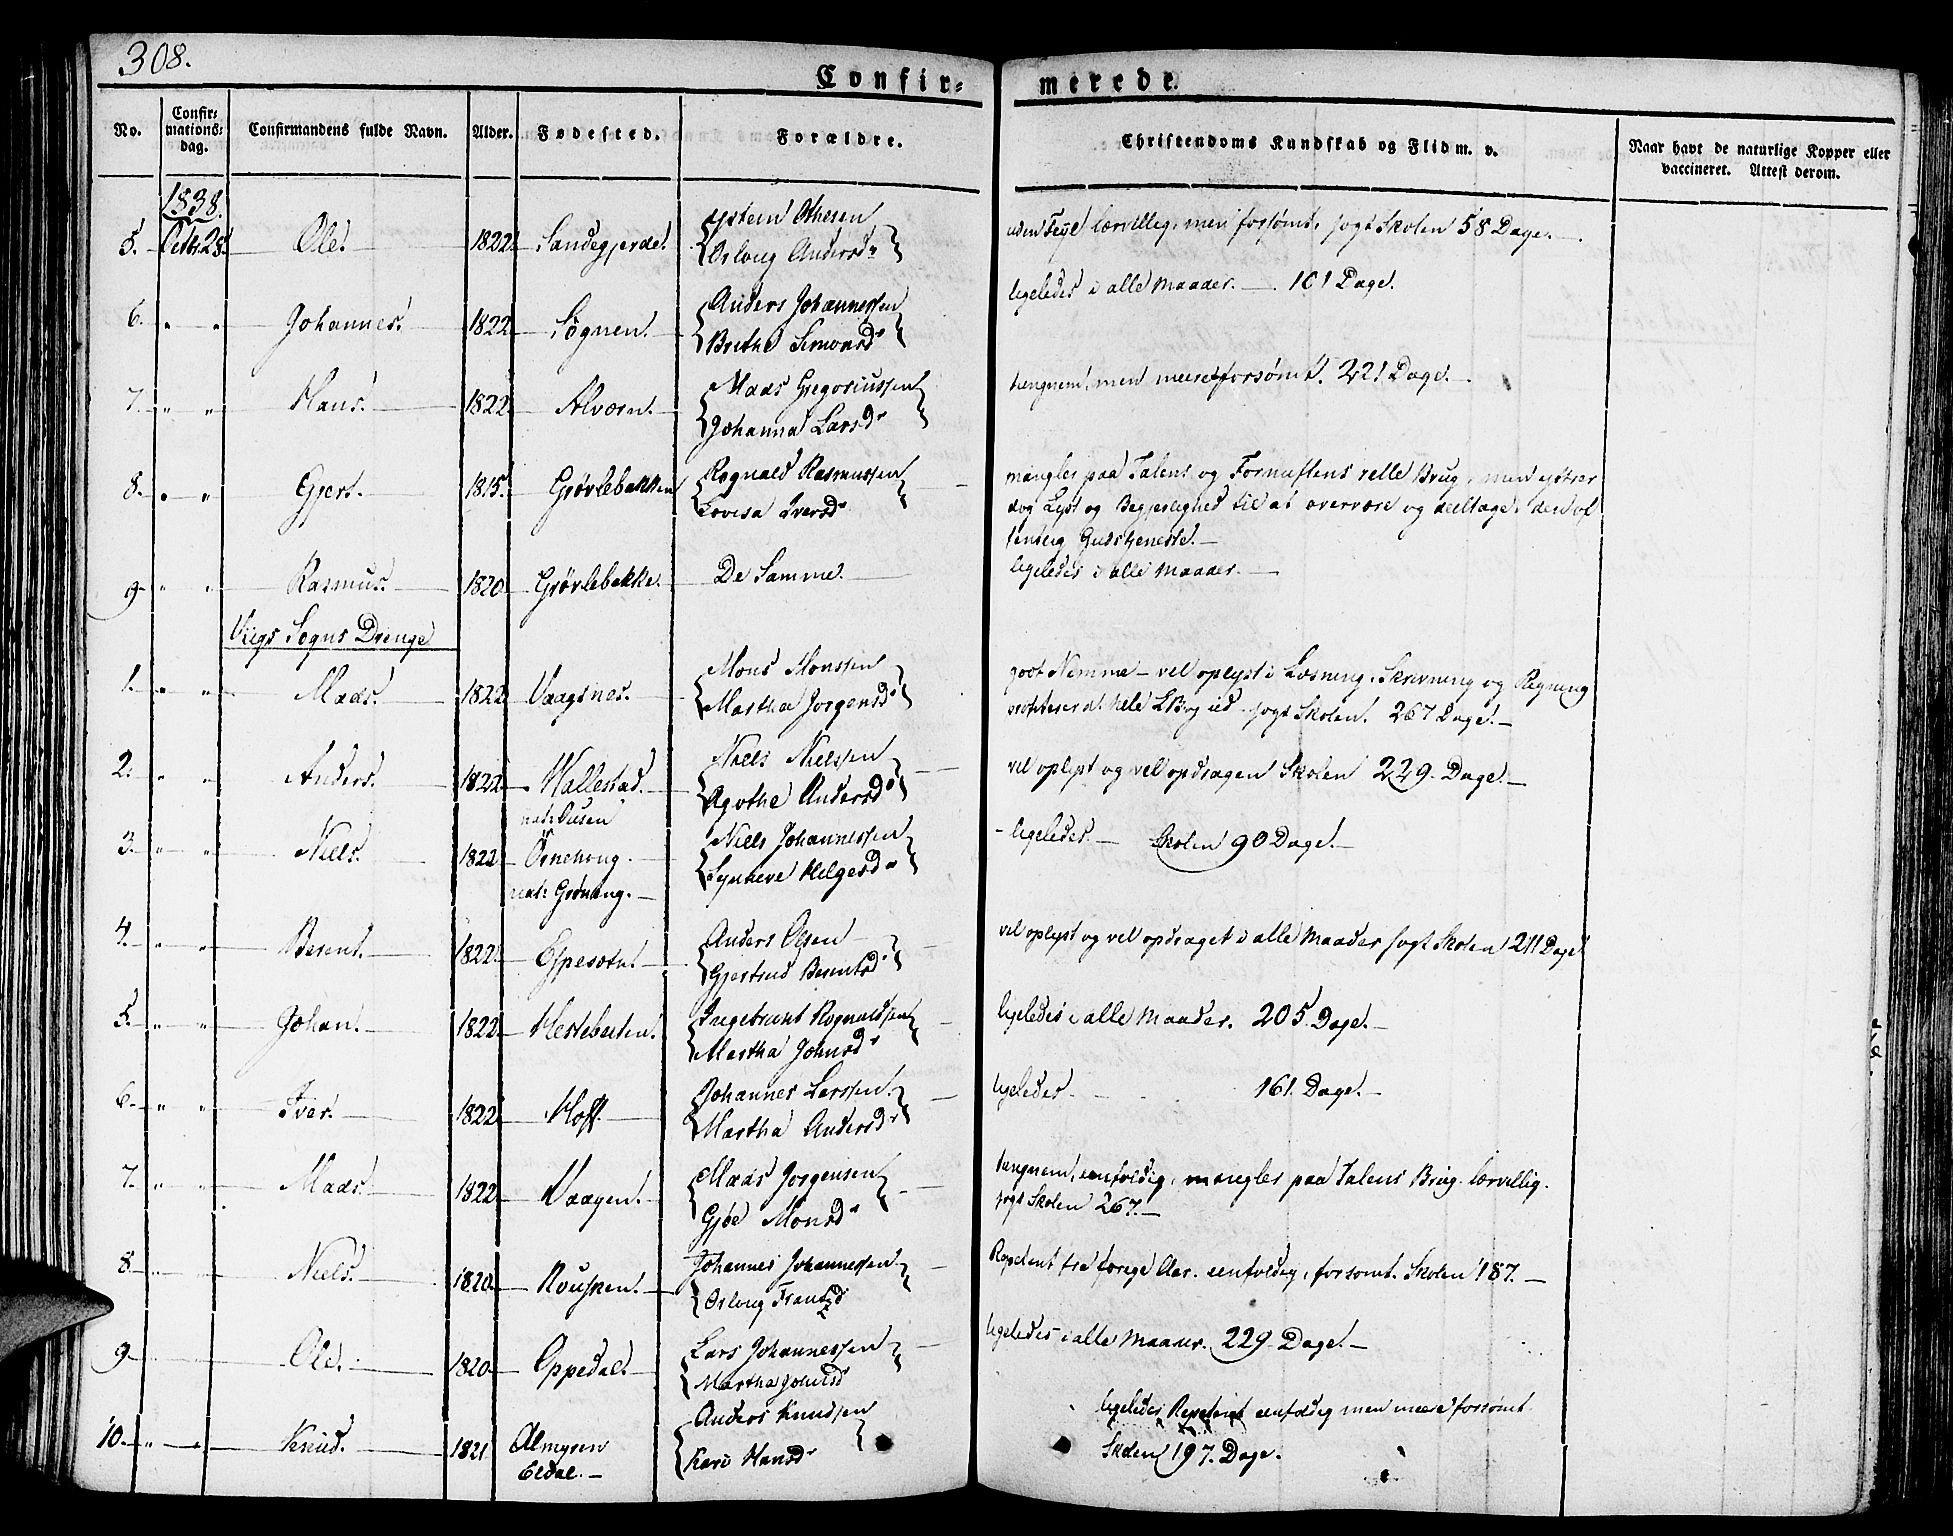 308.
Confir-
merede.
No.
Confir-
mations-
dag.
Confirmandens fulde Navn.
Alder.
Fødested.
Forældre.
Christendoms Kundskab og Flid m. v.
Naar havt de naturlige Kopper eller
vaccineret. Attest derom.
1838.
5. Octbr 28. Ole. 1822. Sandegjerde.
Østein Othesen
Orloug Andersdr
uden Feyl lærvillig, men forsømt, søgt Skolen 58 Dage.
6. " " Johannes. 1822. Søgnen.
Anders Johannessen
Brithe Simonsdr
ligeledes i alle Maader. 101 Dage.
7. " " Hans. 1822. Alværn.
Mads Gregoriussen
Johanna Larsdr
tungnem, men meere forsømt. 221 Dage.
8. " " Gjert. 1815. Grøvlebakken
Rognald Rasmussen
Lovisa Iversdr
mangler paa Talens og Fornuftens relle Brug, men yttrer
dog Lyst og Begjerlighed til at overvære og deeltage i den of
fentlig Gudstjeneste.
9 " " Rasmus. 1820. Grøvlebakke.
De Samme.
ligeledes i alle Maader.
Viigs Sogns Drenge
1. " " Mads. 1822 Vaagsnes.
Mons Monssen
Martha Jørgensdr
godt Nemme - vel oplyst i Læsning, Skrivning og Regning
hele LBog ud søgt Skolen. 267 Dage.
2. " " Anders. 1822. Hallestad.
Niels Nielssen
Agothe Andersdr
vel oplyst og vel opdragen Skolen 229 Dage.
3. " " Niels. 1822 Ørnehoug
Niels Johannessen
Synneve Helgesdr
ligeledes. Skolen 90 Dage.
4. " " Berent. 1822. Espesætn.
Anders Olsen
Gjertrud Berentsdr
vel oplyst og vel opdraget i alle Maader søgt Skolen 211 Dage
5. " " Johan. 1822. Hestebeiten.
Ingebrigt Rognaldsen
Martha Johnsdr
ligeledes i alle Maader. 205 Dage.
6. " " Iver. 1822. Hoff.
Johannes Larssen.
Martha Andersdr
ligeledes. 161. Dage.
7. " " Mads. 1822 Vaagen.
Mads Jorgensen
Gjøe Monsdr
tungnem, eenfoldig, mangler paa Talens Brug. lærvillig.
søgt Skolen 267.
8. Niels. 1820. Rousken.
Johannes Johannessen
Orloug Frantzd
Repetent fra forrige Aar. eenfoldig, forsømt. Skolen 187.
9. Ole. 1820. Oppedal.
Lars Johannessen
Martha Johnsd
ligeledes i alle Maader. 229 Dage.
10. " " Knud. 1821 Almyren
Eldal.
Anders Knudsen
Kari Hansdr
ligeledes Repetent eenfoldig men mere forsømt.
Skolen 197. Dage.